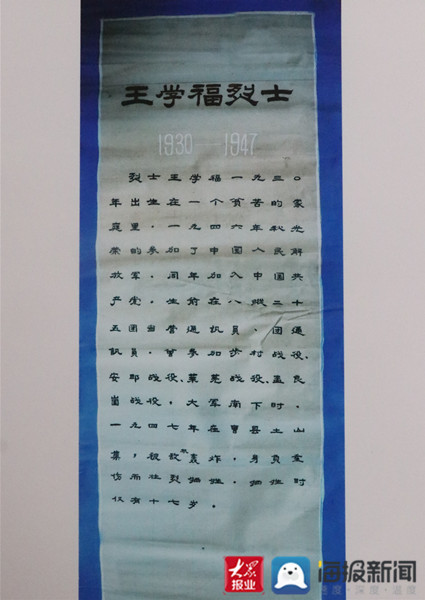 王学福烈士
1930——1947
烈士王学福一九三〇
年出生在一个贫苦的家
庭里,一九四六年秋光
荣的参加了中国人民解
放军,同年加入中国共
产党,生前在八纵二十
五团当营通讯员、团通
讯员,曾参加 战役、
安邱战役、莱芜战役、孟良
崮战役,大军南下时,
一九四七年在曹县土山
集,被敌 轰炸,身负重
伤而壮烈牺牲,牺牲时
仅有十七岁。
大众报业
海报新闻
速度·深度·温度